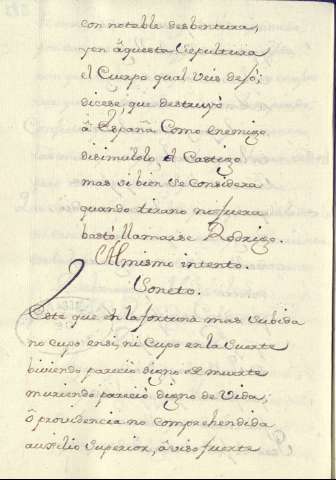 con notable desbentura,
yen aquesta Sepultura
el Cuerpo qual Veis dejo;
dicese, que destruyò
â España Como enemigo
disimulolo, el Castigo
mas si bien se considera
quando tirano no fuera
bastò llamarse Rodrigo.
Al mismo intento.
Soneto.
Este que en la fortuna mas subida
no cupo ensi, ni Cupo en la Suerte
biviendo pareciò digno de muerte
muriendo pareciò digno de Vida;
ô providencia no Comprehendida
auxilio Superior, âviso fuerte